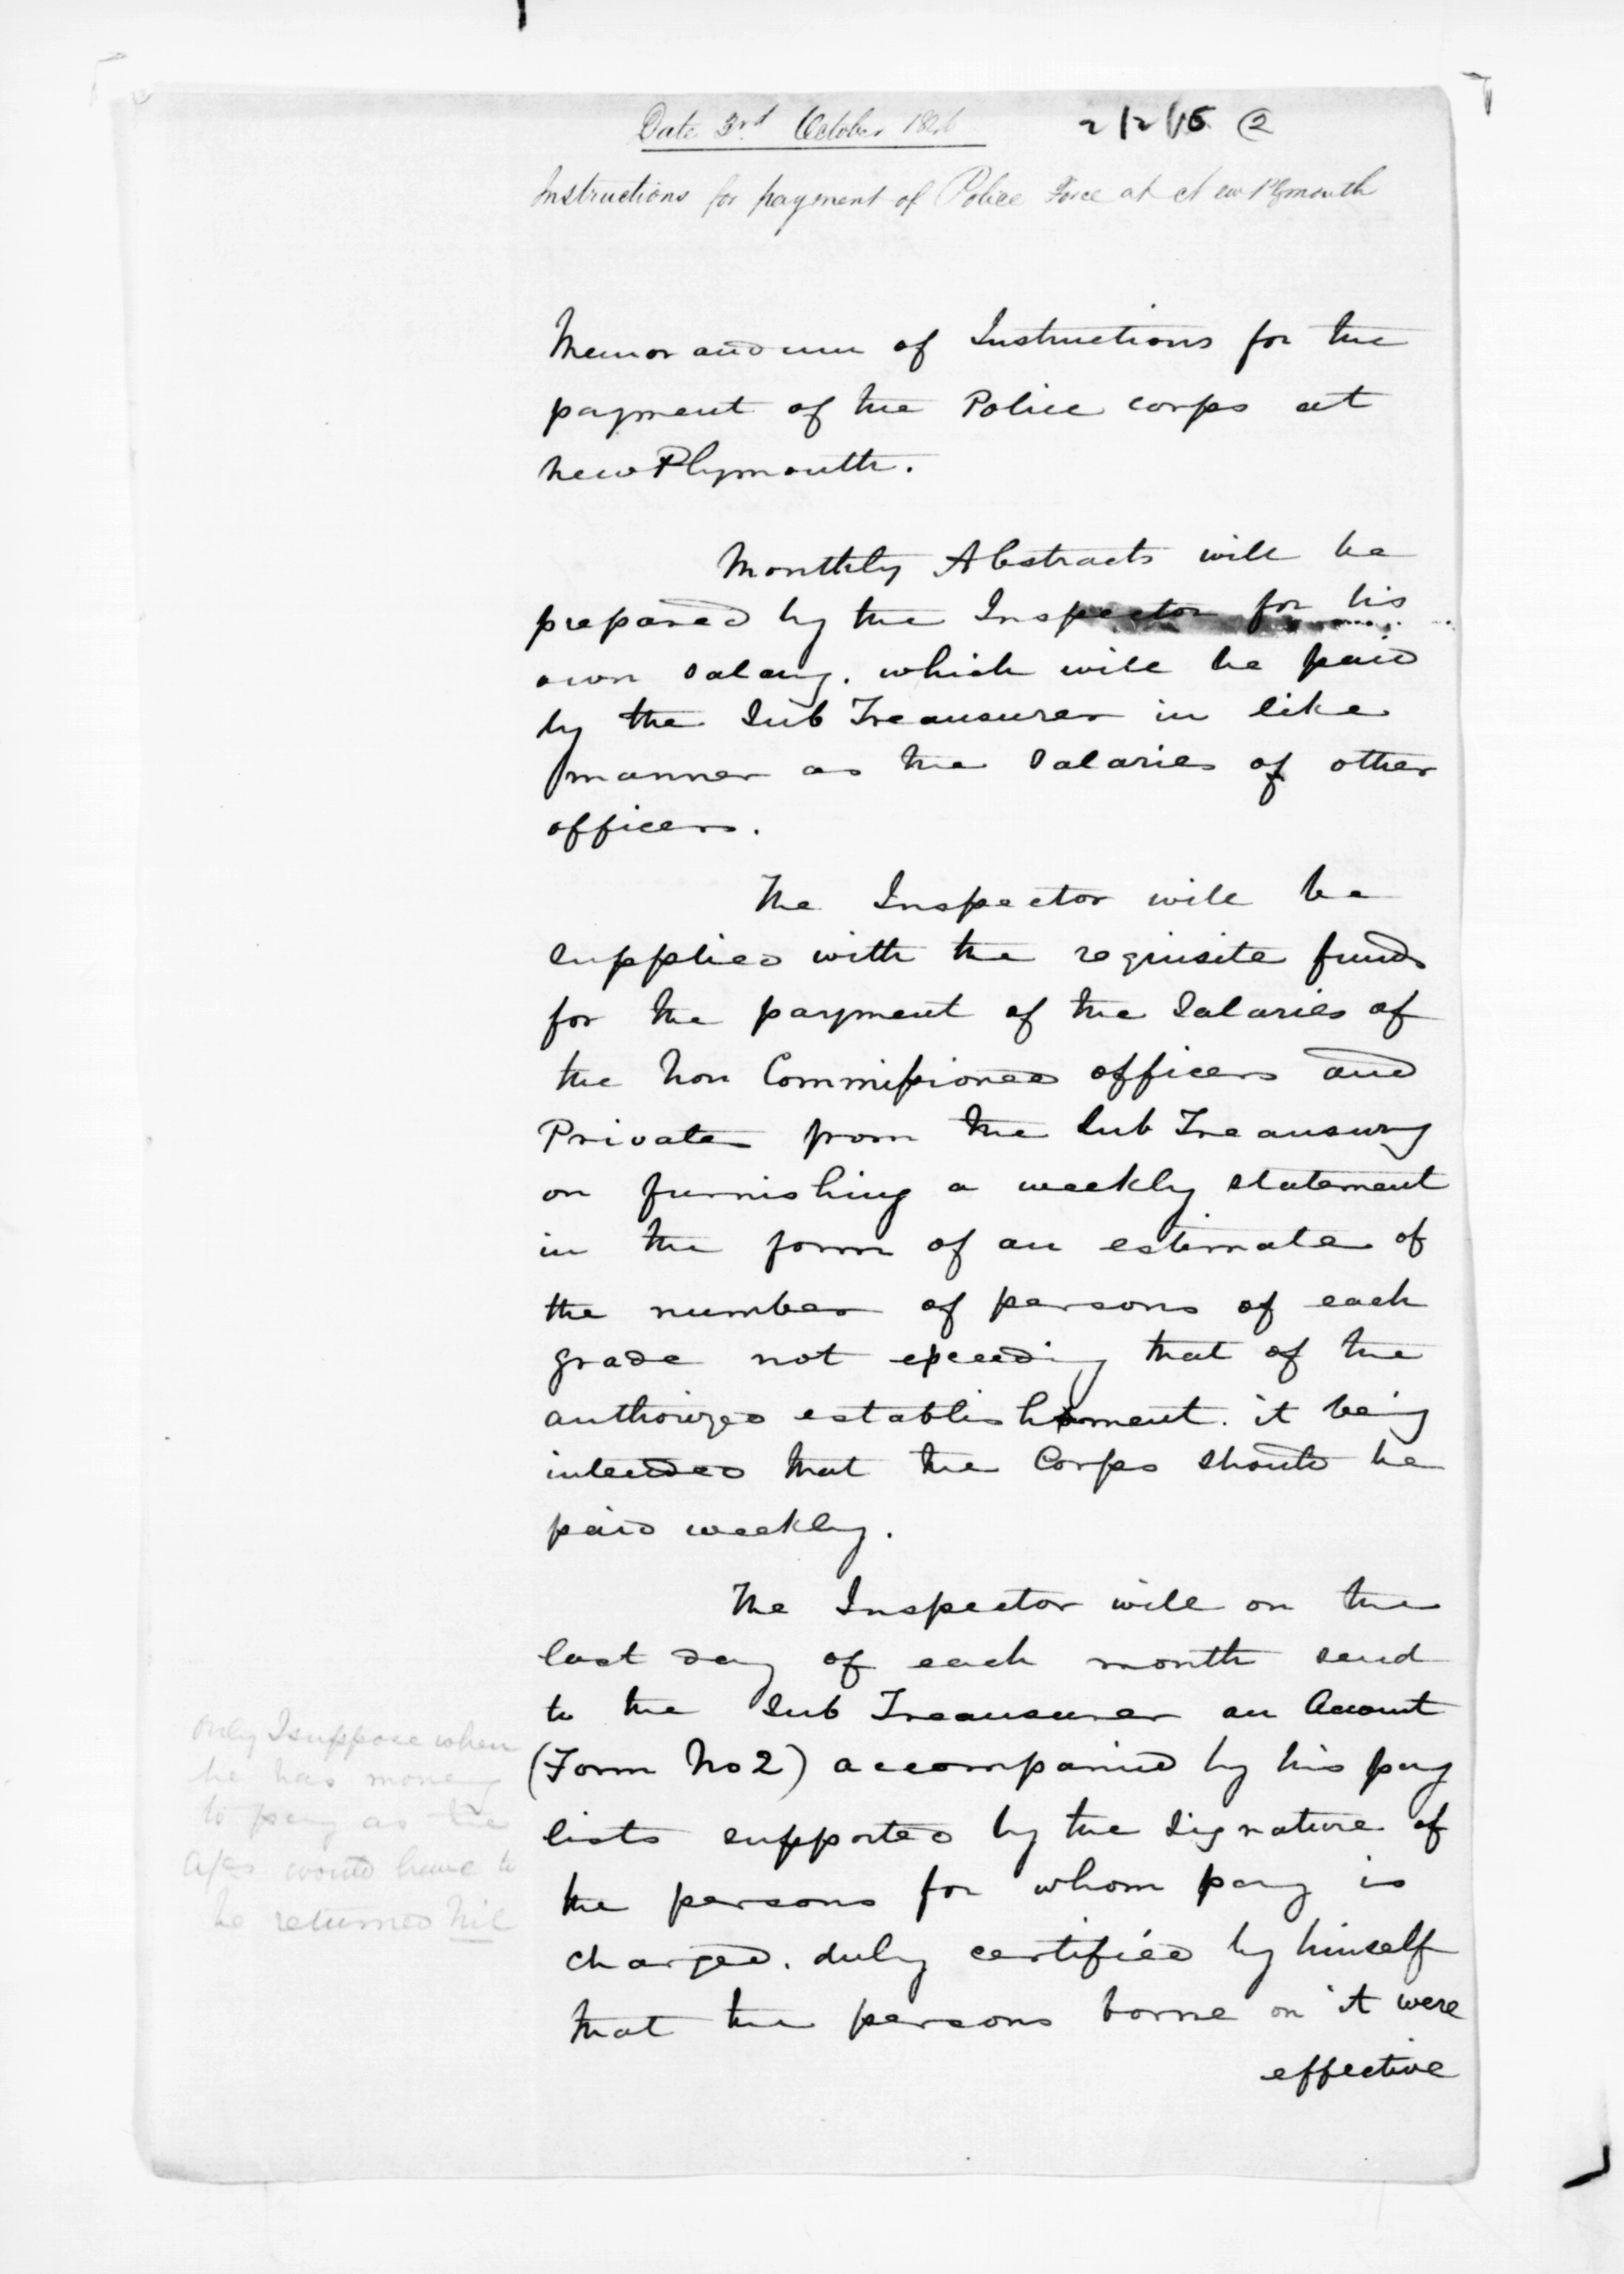 Date 3rd October 1846
2/2/15 (2
Instructions for payment of Police Force at New Plymouth
Memorandum of Instructions for the
payment of the Police corps at
New Plymouth.
Monthly Abstracts will be
prepared by the Inspector for his
own salary. which will be paid
by the Sub Treasurer in like
manner as the Salaries of other
officers.
The Inspector will be
supplied with the requisite funds
for the payment of the Salaries of
the Non Commissioned officers and
Privates from the Sub Treasury
on furnishing a weekly statement
in the form of an estimate of
the number of persons of each
grade not exceeding that of the
authorized establishment. it being
intended that the Corps should be
paid weekly.
The Inspector will on the
last day of each month send
to the Sub Treasurer an Account
(Form No 2) accompanied by his pay
lists supported by the Signature of
the persons for whom pay is
charged. duly certified by himself
that the persons borne on it were
effective
Only I suppose when
he has money
to pay as the
A/cs would have to
be returned Nil